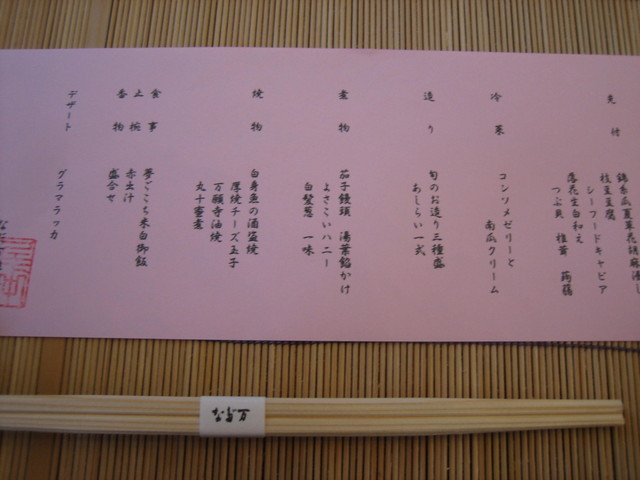 先付
錦糸瓜夏草花胡麻浸し
枝豆豆腐
シーフードキャビア
落花生白和え
つぶ貝 椎茸 蒟蒻
冷菜
コンソメゼリーと
南瓜クリーム
造り
旬のお造り三種盛
あしらい一式
煮物
茄子饅頭 湯葉餡かけ
よさこいハニー
白髪葱 一味
焼物
白身魚の酒盗焼
厚焼チーズ玉子
万願寺油焼
丸十蜜煮
食事
夢ごこち米白御飯
止椀
赤出汁
香物
盛合せ
デザート
グラマラッカ
なだ万